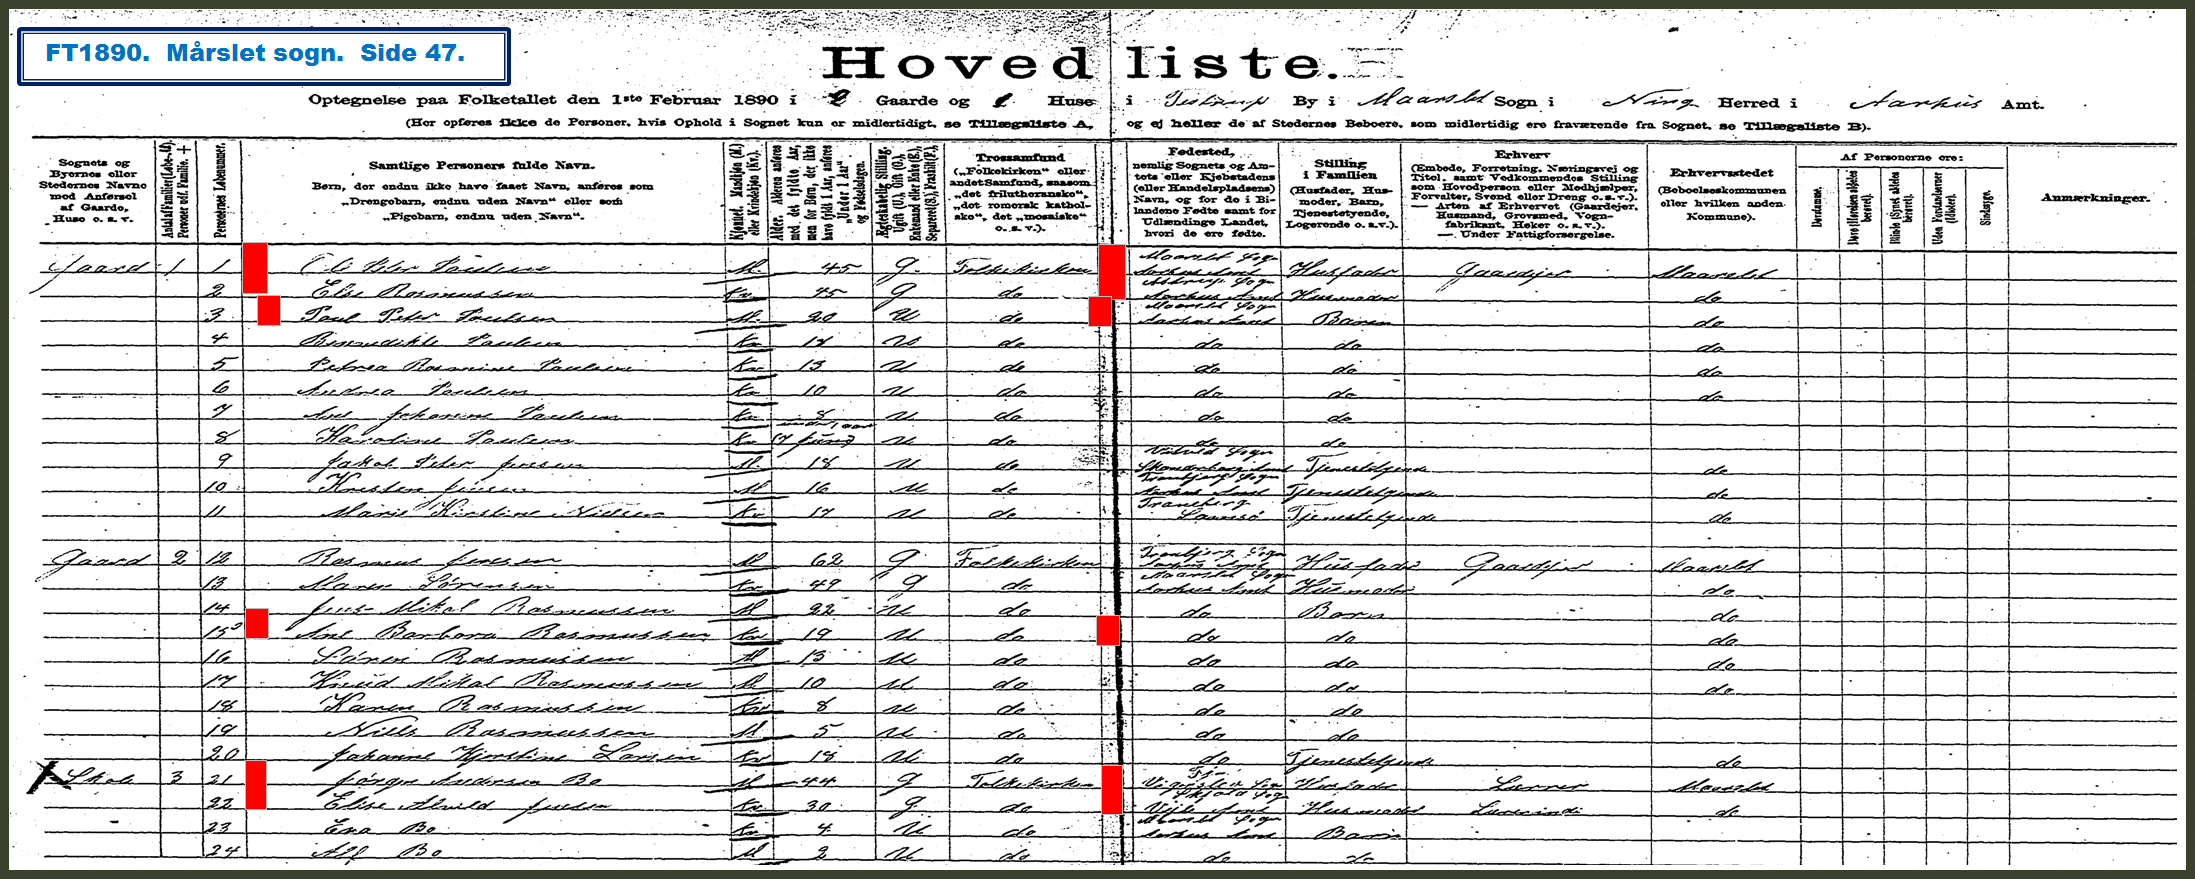 FT1890. Mårslet sogn. Side 47.
Hovedliste.
Optegnelse paa Folketallet den 1ste Februar 1890 i 2 Gaarde og 1 Huse i Testrup By i Maarslet Sogn i Ning Herred i Aarhus Amt.
(Her opføres ikke de Personer, hvis Ophold i Sognet kun er midlertidigt, se Tillægsliste A, og ej heller de af Stedernes Beboere, som midlertidig ere fraværende fra Sognet, se Tillægsliste B).
Sognets og Byernes eller Stedernes Navne med Anførsel af Gaarde, Huse o. s. v.
Personernes Løbenummer.
Samtlige Personers fulde Navn.
Børn, der endnu ikke have faaet Navn, anføres som „Drengebarn, endnu uden Navn" eller som „Pigebarn, endnu uden Navn".
Kjønnet. Mandkjøn (M.) eller Kvindekjøn (Kv.).
Alder. Alderen anføres med det fyldte Aar, men for Børn, der ikke have fyldt 1 Aar, anføres „Under 1 Aar" og Fødselsdagen.
Ægteskabelig Stilling. Ugift (U.), Gift (G.), Enkemand eller Enke (E.), Separeret (S.), Fraskilt (F.).
Trossamfund („Folkekirken" eller andet Samfund, saasom „det frilutheranske", „det romersk katholske", det „mosaiske" o. s. v.).
Fødested, nemlig Sognets og Amtets eller Kjøbstadens (eller Handelspladsens) Navn, og for de i Bilandene Fødte samt for Udlændinge Landet, hvori de ere fødte.
Stilling i Familien (Husfader, Husmoder, Barn, Tjenestetyende, Logerende o. s. v.).
Erhverv (Embede, Forretning, Næringsvej og Titel, samt Vedkommendes Stilling som Hovedperson eller Medhjælper, Forvalter, Svend eller Dreng o. s. v.). — Arten af Erhvervet (Gaardejer, Husmand, Grovsmed, Vognfabrikant, Høker o. s. v.). — Under Fattigforsørgelse.
Erhvervsstedet (Beboelseskommunen eller hvilken anden Kommune).
Af Personerne ere:
Døvstumme.
Døve (Hørelsen aldeles berøvet).
Blinde (Synet aldeles berøvet).
Uden Forstandsevner (Idioter).
Sindssyge.
Anmærkninger.
Gaard 1 1 Paulsen M. 45 G. Folkekirken Maarslet Sogn Aarhus Amt Husfader Gaardejer Maarslet
2 Else Rasmussen Kv 45 G do Astrup Sogn Aarhus Amt Husmoder do
3 Poul Peter Paulsen M. 20 U do Maarslet Sogn Aarhus Amt Barn do
4 Benedikte Paulsen Kv U do do do do
5 Petrea Rasmine Paulsen Kv 13 U do do do do
6 Andrea Paulsen Kv 10 U do do do do
7 Ane Johanne Paulsen Kv 8 U do do do
8 Karoline Paulsen Kv under 1 aar 17 Juni U do do do
9 Jakob Peter Jensen M. 18 U do Sogn Skanderborg Amt Tjenestetyende do
10 Kristen Jensen M 16 U do Tranbjerg Sogn Aarhus Amt Tjenestetyende do
11 Marie Kirstine Nielsen Kv 17 U do Tranebjerg Samsø Tjenestetyende do
Gaard 2 12 Rasmus Jensen M 62 G Folkekirken Tranbjerg Sogn Aarhus Amt Husfader Gaardejer Maarslet
13 Maren Sørensen Kv 49 G do Maarslet Sogn Aarhus Amt Husmoder do
14 Jens Mikal Rasmussen M 22 U do do Barn do
15 Ane Barbara Rasmussen Kv 19 U do do do do
16 Søren Rasmussen M 13 U do do do do
17 Knud Mikal Rasmussen M 10 U do do do do
18 Karen Rasmussen Kv 8 U do do do
19 Niels Rasmussen M 5 U do do do
20 Johanne Kjerstine Larsen Kv 18 U do do Tjenestetyende do
Skole 3 21 Jørgen Andersen Bo M 44 G Folkekirken Sogn Husfader Lærer Maarslet
22 Elise Alvild Jensen Kv 30 G do Sogn Vejle Amt Husmoder Lærerinde do
23 Ena Bo Kv 4 U do Maarslet Sogn Aarhus Amt Barn
24 Alf Bo M 2 U do do do